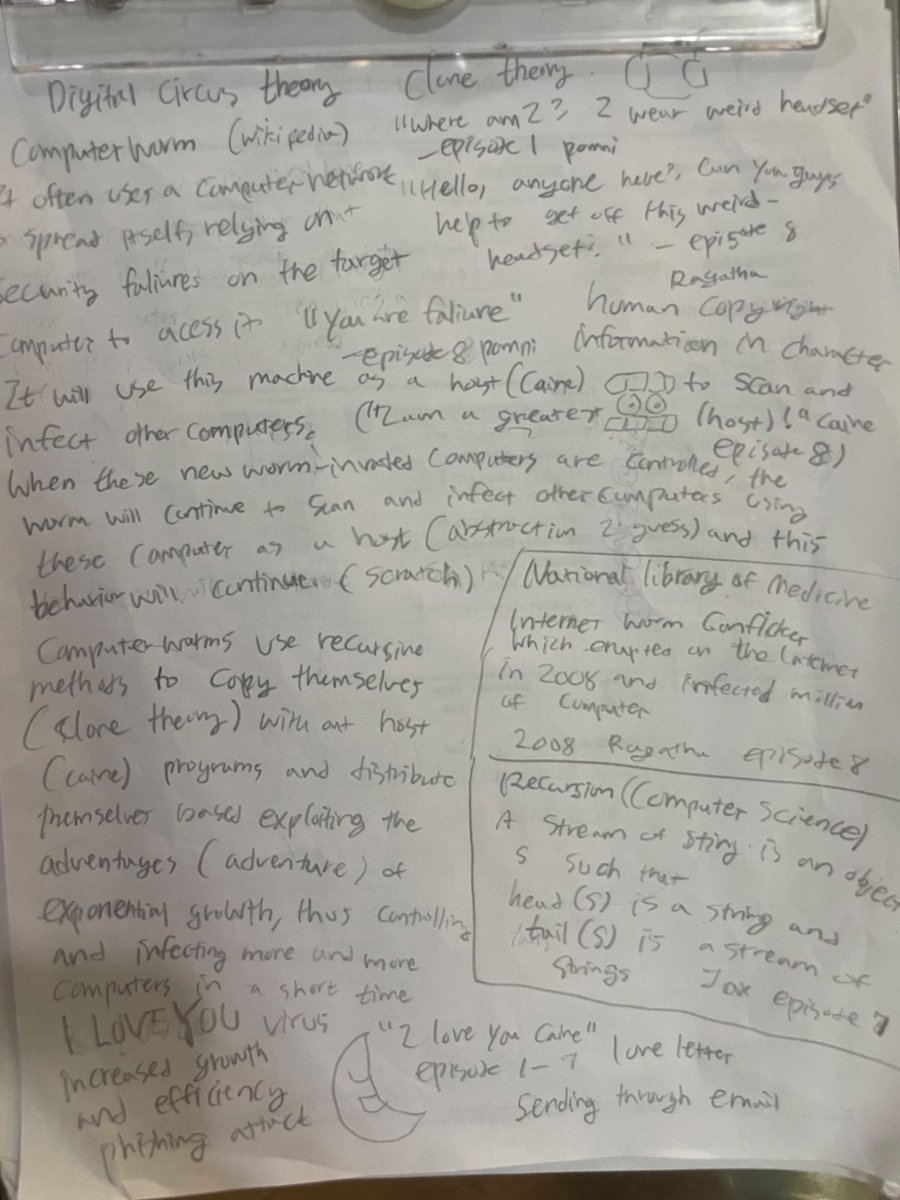 Digital Circus theory
Clone theory
"Where am I? I wear weird headset"
-episode 1 pomni
Computer worm (wikipedia)
it often uses a computer network
to spread itself, relying on
security faliures on the target
computer to acess it
"Hello, anyone here?, Can you guys
help to get off this weird-
headset?" - episode 8
Ragatha
"You are faliure"
-episode 8 pomni
human copy
information in character
It will use this machine as a host (Caine) to scan and
infect other computers. ("I am a greatest (host)!" Caine
episode 8)
When these new worm-invaded computers are controlled, the
worm will continue to scan and infect other computers using
these computer as a host (abstraction I guess) and this
behavior will continue (scratch)
Computer worms use recursive
methods to copy themselves
(clone theory) with out host
(caine) programs and distribute
themselves based exploiting the
adventuges (adventure) of
exponential growth, thus controlling
and infecting more and more
computers in a short time
National library of Medicine
Internet worm Conficker
which erupted on the internet
in 2008 and infected million
of computer
2008 Ragatha episode 8
Recursion (Computer Science)
A stream of sting is an object
s such that
head(s) is a string and
tail(s) is a stream of
strings Jax episode 7
I LOVE YOU virus
increased growth
and efficiency
phishing attack
"I love you Caine"
episode 1-7
love letter
sending through email